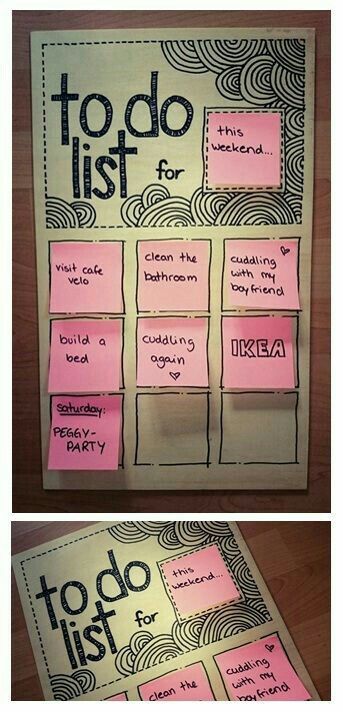 to do
list for
this
weekend...
visit cafe
velo
clean the
bathroom
cuddling
with my
boyfriend
build a
bed
cuddling
again
IKEA
saturday:
PEGGY-
PARTY
to do
list for
this
weekend...
clean the
cuddling
with my
boyfriend